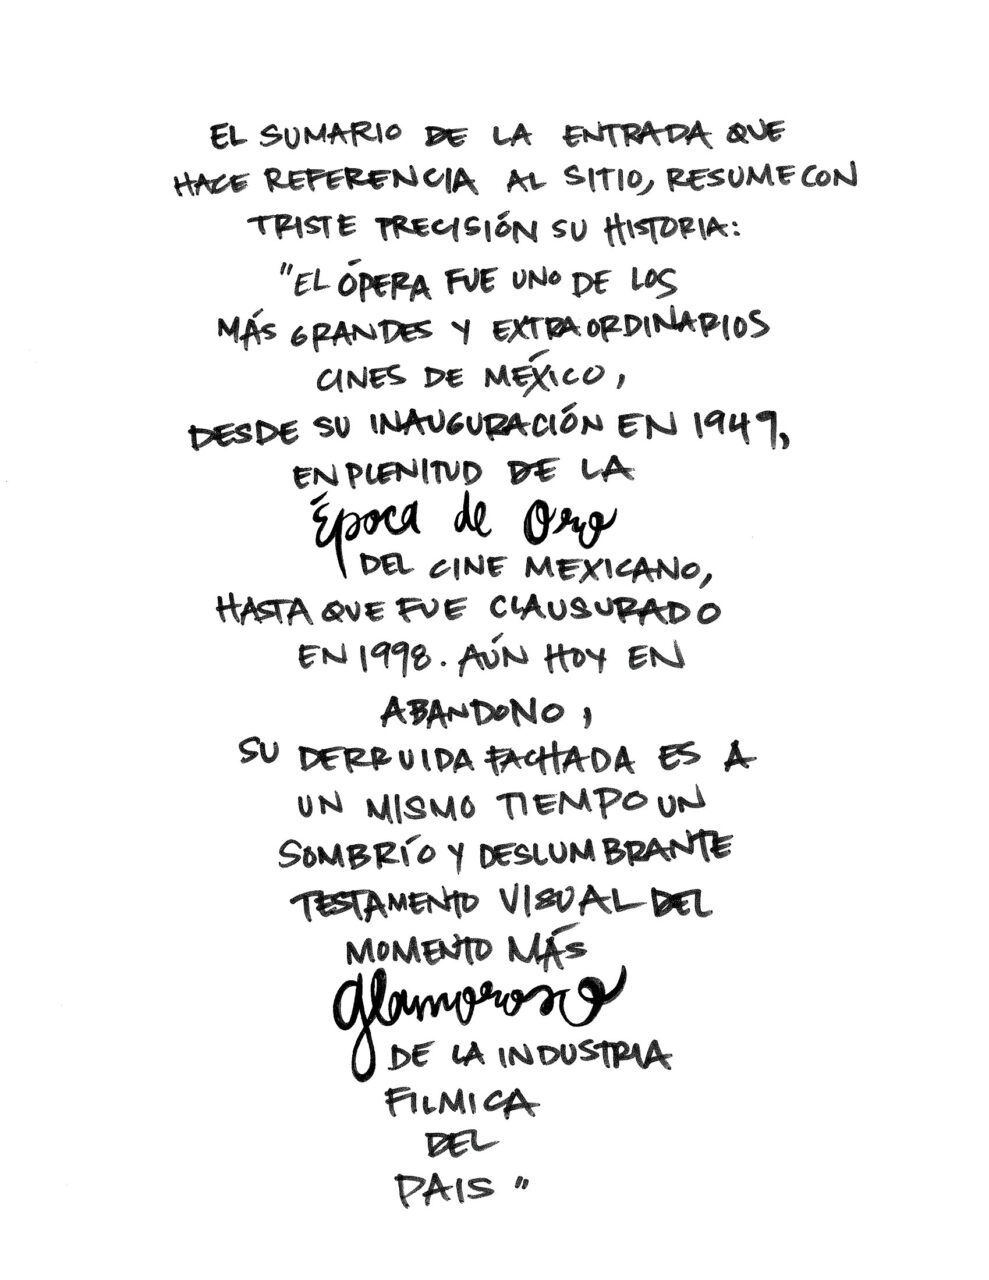 EL SUMARIO DE LA ENTRADA QUE
HACE REFERENCIA AL SITIO, RESUME CON
TRISTE PRECISIÓN SU HISTORIA:
"EL ÓPERA FUE UNO DE LOS
MÁS GRANDES Y EXTRAORDINARIOS
CINES DE MÉXICO,
DESDE SU INAUGURACIÓN EN 1949,
EN PLENITUD DE LA
Época de Oro
DEL CINE MEXICANO,
HASTA QUE FUE CLAUSURADO
EN 1998. AÚN HOY EN
ABANDONO,
SU DERRUIDA FACHADA ES A
UN MISMO TIEMPO UN
SOMBRÍO Y DESLUMBRANTE
TESTAMENTO VISUAL DEL
MOMENTO MÁS
glamoroso
DE LA INDUSTRIA
FILMICA
DEL
PAIS"